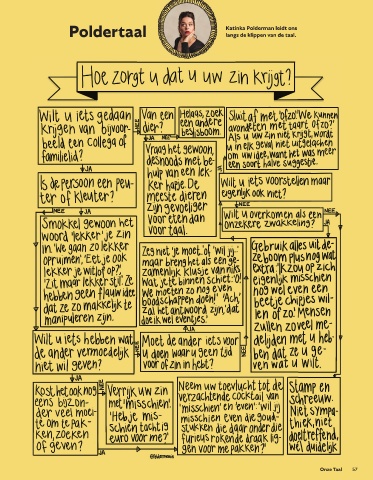 Poldertaal
Katinka Polderman leidt ons
langs de klippen van de taal.
Hoe zorgt u dat u uw zin krijgt?
Wilt u iets gedaan
krijgen van bijvoor-
beeld een collega of
familielid?
NEE
Van een
dier?
JA
NEE
Helaas, zoek
een andere
beslisboom.
Sluit af met 'ofzo'. 'We kunnen
avondeten met taart ofzo?'
Als u uw zin niet krijgt, wordt
u in elk geval niet uitgelachen
om uw idee, want het was meer
een soort halve suggestie.
Vraag het gewoon,
desnoods met be-
hulp van een lek-
ker hapje. De
meeste dieren
zijn gevoeliger
voor eten dan
voor taal.
JA
Is de persoon een peu-
ter of kleuter?
Wilt u iets voorstellen maar
eigenlijk ook niet?
NEE
JA
NEE
Wilt u overkomen als een
onzekere zwakkeling?
NEE
JA
Smokkel gewoon het
woord 'lekker' je zin
in. 'We gaan zo lekker
opruimen', 'Eet je ook
lekker je witlof op?',
'Zit maar lekker stil.' Ze
hebben geen flauw idee
dat ze zo makkelijk te
manipuleren zijn.
Zeg niet 'je moet' of 'wil jij'
maar breng het als een ge-
zamenlijk klusje van niks
wat je te binnen schiet. 'O!
We moeten zo nog even
boodschappen doen!' 'Ach,
zal het antwoord zijn, 'dat
doe ik wel eventjes.'
Gebruik alles uit de-
ze boom plus nog wat
extra. 'Ik zou op zich
eigenlijk misschien
nog wel even een
beetje chipjes wil-
len of zo.' Mensen
zullen zoveel me-
delijden met u heb-
ben dat ze u ge-
ven wat u wilt.
JA
Wilt u iets hebben wat
de ander vermoedelijk
niet wil geven?
NEE
Moet de ander iets voor
u doen waar u geen tijd
voor of zin in hebt?
NEE
JA
Kost het ook nog
eens bijzon-
der veel moei-
te om te pak-
ken, zoeken
of geven?
NEE
Verrijk uw zin
met 'misschien'.
'Heb je mis-
schien tachtig
euro voor me?'
Neem uw toevlucht tot de
verzachtende cocktail van
'misschien' en 'even': 'wil jij
misschien even die goud-
stukken die daar onder die
furieus rokende draak lig-
gen voor me pakken?'
Stamp en
schreeuw.
Niet sympa-
thiek, niet
doeltreffend,
wel duidelijk
JA
Onze Taal 57